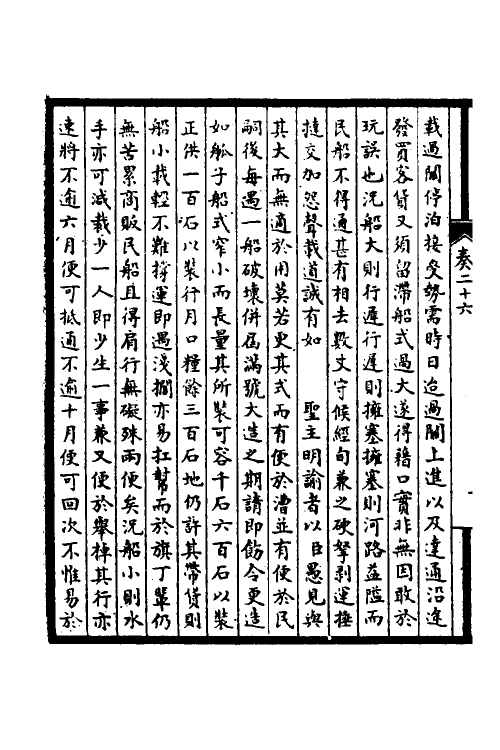 奏二十六
載過閘停泊接受勢需時日迨過閘上進以及達通沿途
發買客貨又須留滯船式過大遂得藉口實非無因敢於
玩誤也況船大則行遲行遲則擁塞擁塞則河路益隘而
民船不得通甚有相去數丈守候經旬兼之硬拏剥運捶
撻交加怨聲載道誠有如　　聖主明諭者以臣愚見與
其大而無適於用莫若更其式而有便於漕並有便於民
嗣後每遇一船破壞併屆滿號大造之期請即飭令更造
如艍子船式窄小而長量其所裝可容千石六百石以裝
正供一百石以裝行月口糧餘三百石地仍許其帶貨則
船小載輕不難撐運即遇淺擱亦易扛幫而於旗丁輩仍
無苦累商販民船且得肩行無礙殊兩便矣況船小則水
手亦可減載少一人即少生一事兼又便於舉棹其行亦
速將不逾六月便可抵通不逾十月便可回次不惟易於